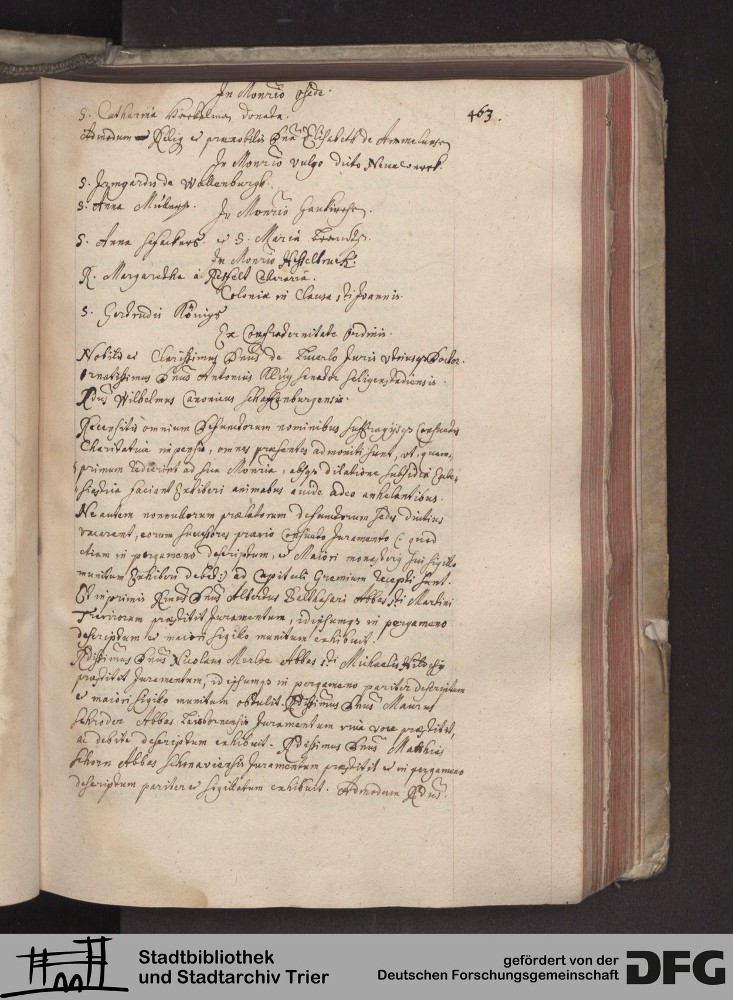 In Monrio Osede.
463.
S. Catharina donata.
Admodum Relig: et praenobilis Dna Elisabeth de Ammelunxen
In Monrio vulgo dicto Newewerck.
S. Irmgardis de Wallenburgh.
S. Anna Müllers.
In Monrio
S. Anna et S. Maria
In Monrio
R. Margaretha à Celleraria.
Colonia in Clausa sti Joannis.
S. Gertrudis Königs
Ex Confraternitate Ordinis.
Nobilis et Clarissimus Dnus de Juris utriusque Doctor.
Ornatissimus Dnus Antonius Klug Senator Seligenstadiensis.
Rdus Wilhelmus Canonicus
Recensitis omnium defunctorum nominibus suffragijsque consuetis
Charitativa impensis, omnes praesentes admoniti sunt, ut, quam,
primum redierint ad sua Monria, absque dilatione subsidia Eccle,
siastica faciant exhiberi animabus avide adeo anhelantibus.
Ne autem nonnullorum praelatorum defunctorum sedes diutius
vacarent, eorum successores praevio consueto Juramento (: quod
etiam in pergameno descriptum, et Maiori monasterij sui sigillo
munitum exhiberi debet :) ad Capituli Gremium recepti sunt.
Et inprimis Rmus Dnus Alderdus Balthasari Abbas sti Martini
Trevirorum praestitit Juramentum, idipsumque in pergameno
descriptum et maiori sigillo munitum exhibuit.
Rdissimus Dnus Nicolaus Abbas sti Michaelis
praestitit Juramentum, idipsumque in pergameno pariter descriptum
et maiori sigillo munitum obtulit. Rdissimus Dnus Maurus
Schroder Abbas Juramentum viva voce praestitit,
ac debite descriptum exhibuit. Rdissimus Dnus Matthias
Schorn Abbas Schonaviensis Juramentum praestitit et in pergameno
descriptum pariter et sigillatum exhibuit. Admodum Rdus
Stadtbibliothek
und Stadtarchiv Trier
gefördert von der
Deutschen Forschungsgemeinschaft
DFG